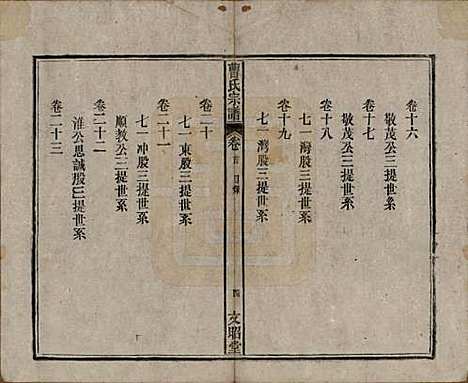 卷十六
敬茂公三提世系
卷十七
敬茂公三提世系
卷十八
七一灣股三提世系
卷十九
七一灣股三提世系
曹氏宗譜
卷首 目錄
四
文昭堂
卷二十
七一東股三提世系
卷二十一
七一冲股三提世系
順教公三提世系
卷二十二
淮公思誠股三提世系
卷二十三